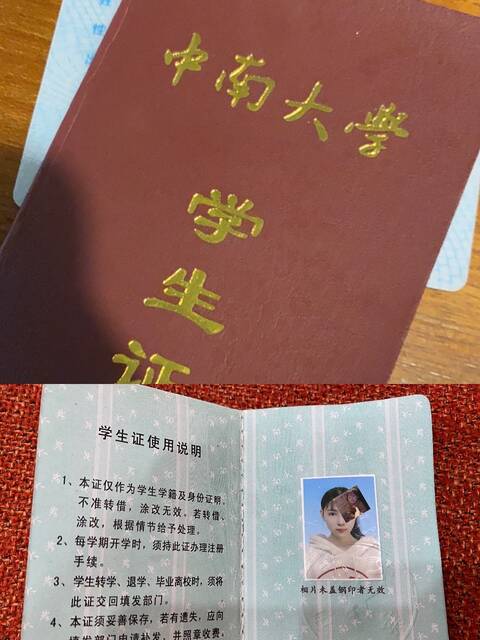 中南大學
学
生
证
学生证使用说明
1、本证仅作为学生学籍及身份证明,
不准转借，涂改无效。若转借、
涂改，根据情节给予处理。
2、每学期开学时，须持此证办理注册
手续。
3、学生转学、退学、毕业离校时，须将
此证交回填发部门。
4、本证须妥善保存，若有遗失，应向
填发部门申请补发，并照章收费，
相片未盖钢印者无效